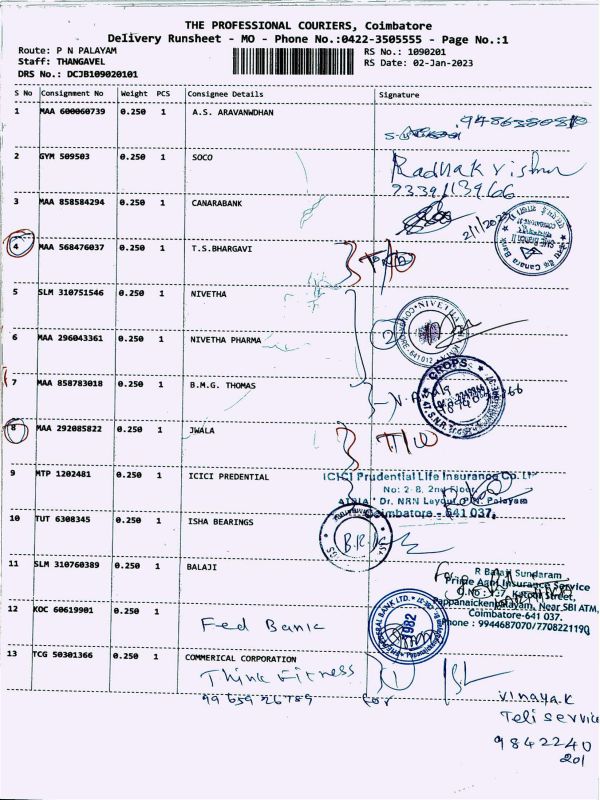 THE PROFESSIONAL COURIERS, Coimbatore
Delivery Runsheet - MO - Phone No.:0422-3505555 - Page No.:1
Route: P N PALAYAM
RS No.: 1090201
Staff: THANGAVEL
RS Date: 02-Jan-2023
DRS No.: DCJB109020101
S No Consignment No Weight PCS Consignee Details Signature
1 MAA 600060739 0.250 1 A.S. ARAVANWDHAN
2 GYM 509503 0.250 1 SOCO Radhakrishnan
3 MAA 858584294 0.250 1 CANARABANK
2/1/2023
4 MAA 568476037 0.250 1 T.S.BHARGAVI
5 SLM 310751546 0.250 1 NIVETHA
NIVETHA
641 012
6 MAA 296043361 0.250 1 NIVETHA PHARMA 2
7 MAA 858783018 0.250 1 B.M.G. THOMAS
CROPS
8 MAA 292085822 0.250 1 JWALA
9 MTP 1202481 0.250 1 ICICI PREDENTIAL ICICI Prudential Life Insurance Co. Lt
No: 2-8, 2nd Floor,
Dr. NRN Layout, P.N. Palayam
Coimbatore - 641 037.
10 TUT 6308345 0.250 1 ISHA BEARINGS
11 SLM 310760389 0.250 1 BALAJI
R Balaji Sundaram
Prime Agni Insurance Service
Street,
Pappanaickenpalayam, Near SBI ATM,
Coimbatore-641 037.
Phone : 9944687070/7708221190
12 KOC 60619901 0.250 1 Fed Bank
1982
13 TCG 50301366 0.250 1 COMMERICAL CORPORATION
Think Fitness
for
Vinaya.K
Teli service
9842240
201